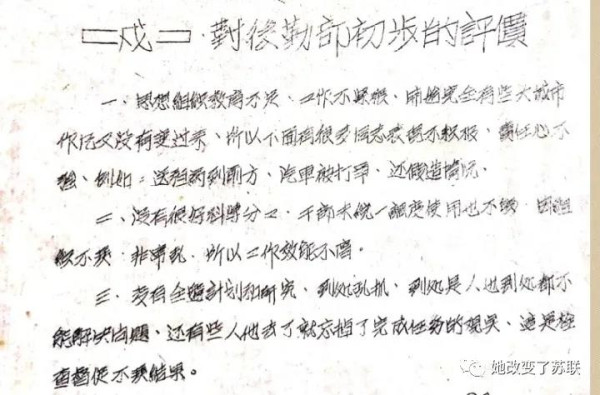 二戍二·對後勤部初步的評價
一、思想組织教育不足,工作不積極,
有些大城市
作风又没有变过来,所以下面有很多同志表现不积极,責任心不
强、例如:送 到前方,汽車被打坏,还假造情况。
二、没有很好科學分工,干部未統一調度使用也不够,因組
织不夹,非常乱,所以工作效能不高。
三、没有全盤計划和研究,到处乱抓,到处是人也到处都不
能解决问题,还有些人他去了就忘掉了完成任务的现实,
查督促不 结果。
她改变了苏联